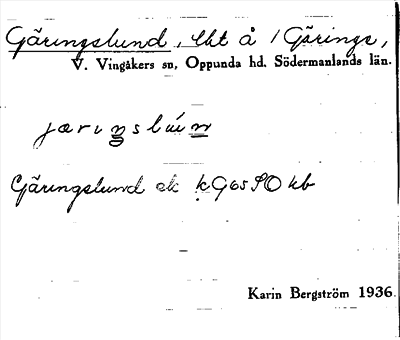 Gäringslund, lht å 1 Gärings,
V. Vingåkers sn, Oppunda hd. Södermanlands län.
järıŋslúṉ
Gäringslund ek kG65SO kb
Karin Bergström 1936.